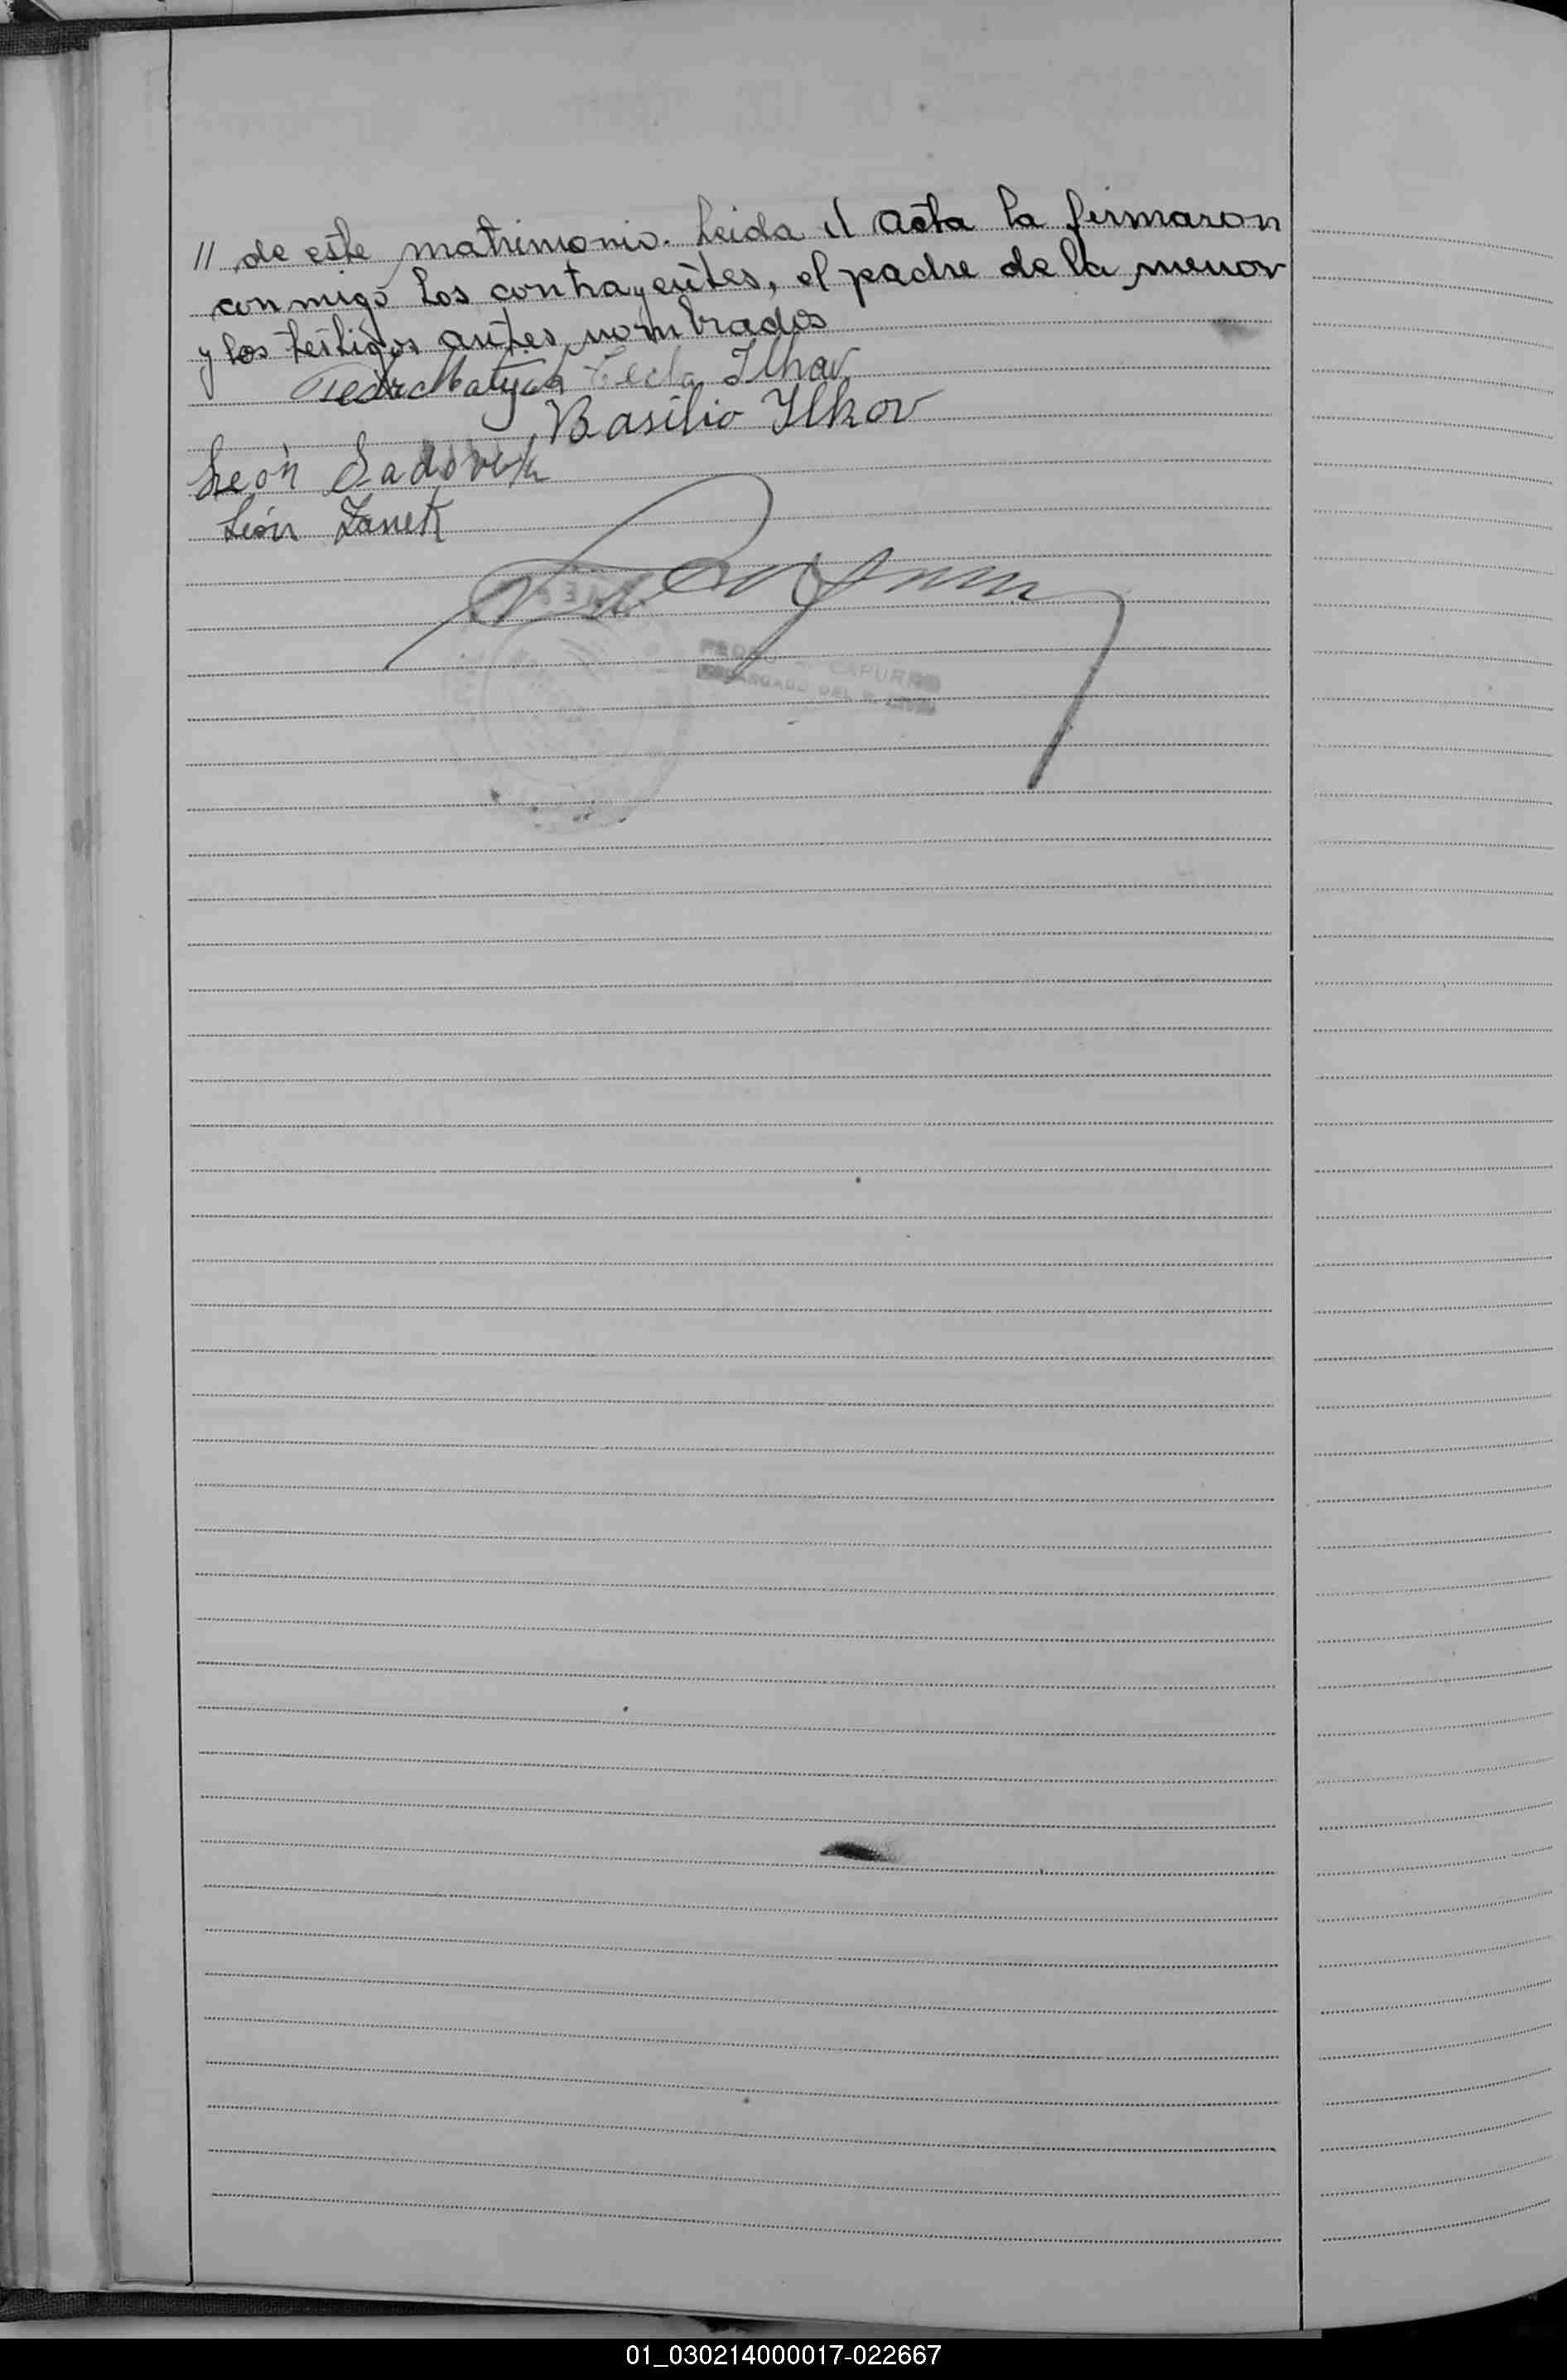 // de este matrimonio. Leida el acta la firmaron
conmigo los contrayentes, el padre de la menor
y los testigos antes nombrados
Pedro Matyjch Tecla Ilkov
Basilio Ilkov
León Sadovik
León Zanek
CAPURRO
ENCARGADO DEL R. CIVIL
01_030214000017-022667